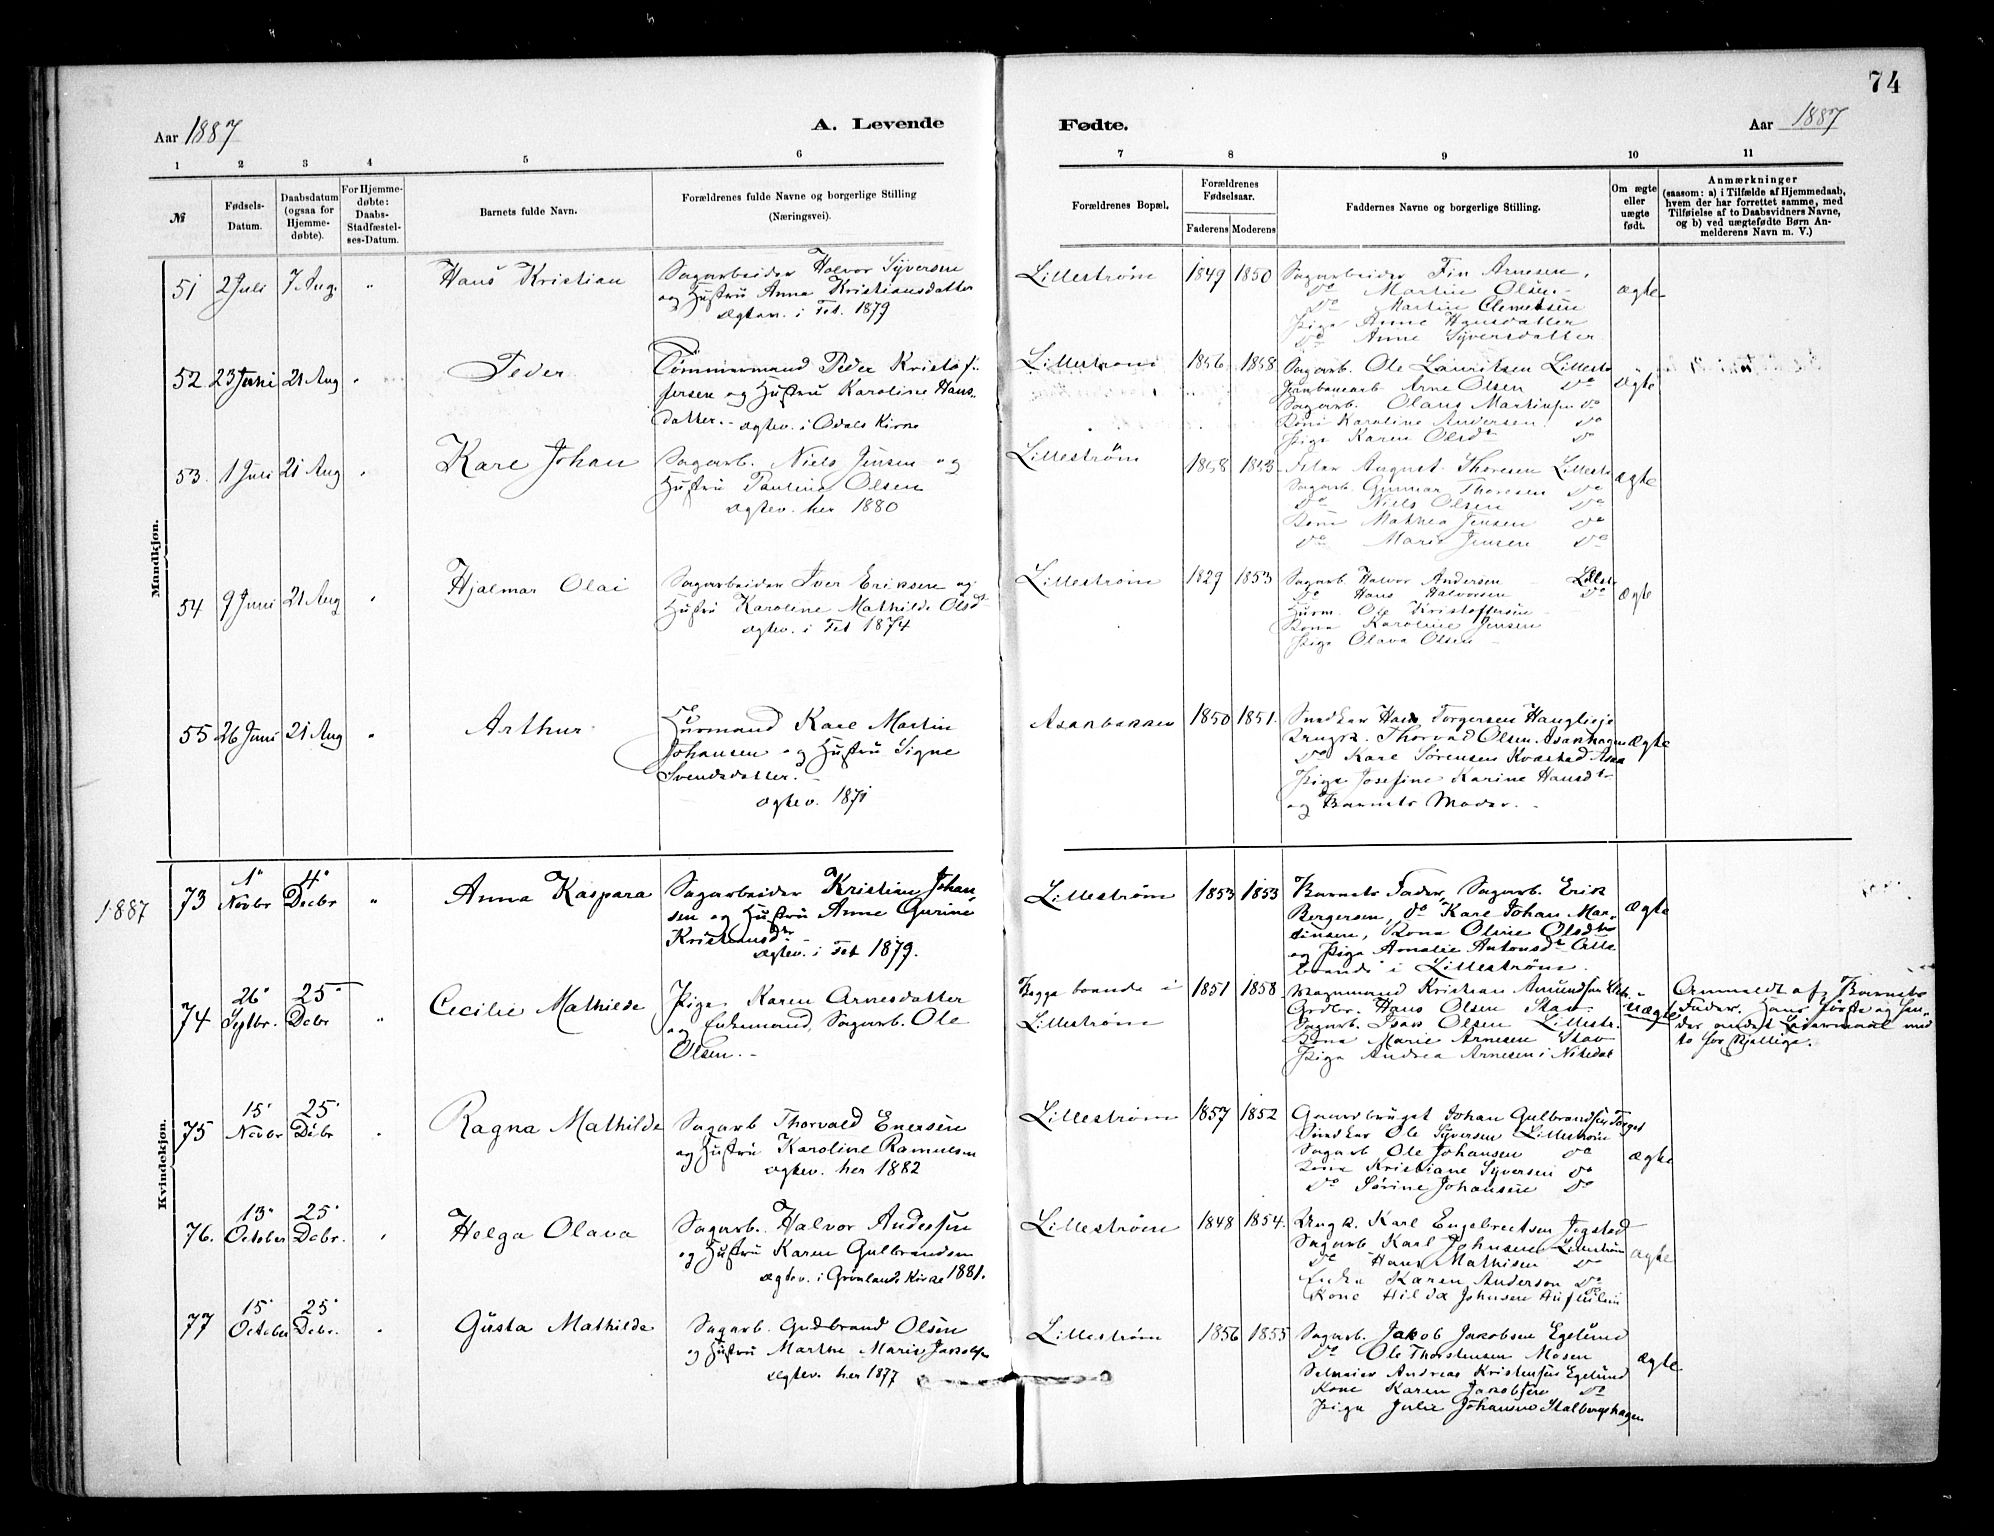 74
Aar 1887
A. Levende
Fødte.
Aar 1887
1 2 3 4 5 6 7 8 9 10 11
№
Fødsels-
Datum.
Daabsdatum
(ogsaa for
Hjemme-
døbte).
For Hjemme-
døbte:
Daabs-
Stadfæstel-
ses-Datum.
Barnets fulde Navn.
Forældrenes fulde Navne og borgerlige Stilling
(Næringsvei).
Forældrenes Bopæl.
Forældrenes
Fødselsaar.
Faderens Moderens
Faddernes Navne og borgerlige Stilling.
Om ægte
eller
uægte
født.
Anmærkninger
(saasom: a) i Tilfælde af Hjemmedaab,
hvem der har forrettet samme, med
Tilføielse af to Daabsvidners Navne,
og b) ved uægtefødte Børn An-
melderens Navn m. V.)
Mandkjøn.
51 2 Juli 7 Aug. " Hans Kristian
Sagarbeider Halvor Syversen
og Hustru Anna Kristiansdatter
ægtev. i Fet 1879
Lillestrøm 1849 1850
Sagarbeider Fin Arnesen,
Do Martin Olsen
Do Martin Clemetsen
Pige Anne Hansdatter
Do Anne Syversdatter
ægte
52 23 Juni 21 Aug " Peder
Tømmermand Peder Kristof-
fersen og Hustru Karoline Hans-
datter. ægtev. i Odals Kirke
Lillestrøm 1856 1858
Sagarb. Ole Lauritsen Lillestr
Jernbanearb Arne Olsen Do
Sagarb. Olaus Martinsen do
Kone Karoline Andersen do
Pige Karen Olsdt Do
ægte
53. 1 Juli 21 Aug " Karl Johan
Sagarb. Niels Jensen og
Hustru Pauline Olsen
ægtev. her 1880
Lillestrøm 1858 1853
August Thoresen Lillestr
Sagarb. Gunnar Thoresen Do
Do Niels Olsen Do
Kone Mathea Jensen do
Do Marie Jensen Do
ægte
54 9 Juni 21 Aug " Hjalmar Olai
Sagarbeider Iver Eriksen og
Hustru Karoline Mathilde Olsdt
ægtev. i Fet 1874
Lillestrøm 1829 1853
Sagarb Halvor Andersen Lillestr
Do Hans Halvorsen Do
Hurm. Ole Kristoffersen
Kone Karoline Jensen
Pige Olava Olsen
ægte
55 26 Juni 21 Aug " Arthur
Hurmand Karl Martin
Johansen og Hustru Signe
Svendsdatter.
ægtev. 1871
Asakbakken 1850 1851.
Snedker Hans Torgersen
Thorvald Olsen. Asakhagen
Do Karl Sørensen Kvæstad Asak
Pige Josefine Karine Hansdtr
og Barnets Moder.
ægte
1887
Kvindekjøn.
73 1" Novbr 4" Decbr " Anna Kaspara
Sagarbeider Kristian Johan
sen og Hustru Anne Gurine
Kristiansdtr
ægtev. i Fet 1879.
Lillestrøm 1853 1853
Barnets Fader, Sagarb. Erik
Bergersen, do Karl Johan Mar-
tinsen, Kone Oline Olsdtr
og Pige Amalie Antonsdt Alle
boende i Lillestrøm.
ægte
74 26" Septbr. 25" Debr " Cecilie Mathilde
Pige Karen Arnesdatter
og Enkemand, Sagarb. Ole
Olsen.
Begge boende i
Lillestrøm
1851 1858
Kristian Amundsen
Grdbr. Hans Olsen Stav
Sagarb. Isak Olsen Lillestr.
Kone Marie Arnesen Stav
Pige Andrea Arnesen i Nitedal
uægte
Anmeldt af Barnets
Fader. Hans første og hen-
des andet Leiermaal med
to for Kjællige.
75 15" Novbr 25" Debr " Ragna Mathilde
Sagarb Thorvald Enersen
og Hustru Karoline
ægtev. her 1882
Lillestrøm 1857 1852
Gaardbruger Johan Gulbrandsen
Snedker Ole Syversen Lillestrøm
Sagarb Ole Johansen do
Kone Kristiane Syversen do
Do Sørine Johansen Do
ægte
76. 13" October 25" Debr. " Helga Olava
Sagarb. Halvor Andersen
og Hustru Karen Gulbrandsen
ægtev. i Grønlands Kirke 1881.
Lillestrøm 1848 1854.
Ungk. Karl Engebretsen Jogstad
Sagarb Karl Johnsen Lillestrøm
Do Hans Mathisen Do
Enke Karen Anderson Do
Kone Hilda Johnsen
ægte
77 15" October 25" Debr. " Gusta Mathilde
Sagarb. Gudbrand Olsen
og Hustru Marthe Marie Jakobsen
ægtev. her 1877
Lillestrøm 1856 1855
Sagarb. Jakob Jakobsen Egelund
Do Ole Thorstensen Mosen
Andreas Kristensen Egelund
Kone Karen Jakobsen do
Pige Julie Johansen Stalbergshagen
ægte